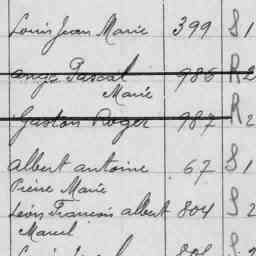 Louis Jean Marie 399 S 1
ange Pascal 986 R 2
Marie
Gaston Roger 987 R 2
albert antoine 67 S 1
Pierre Marie
Léon Francois albert 804 S 2
Marcel